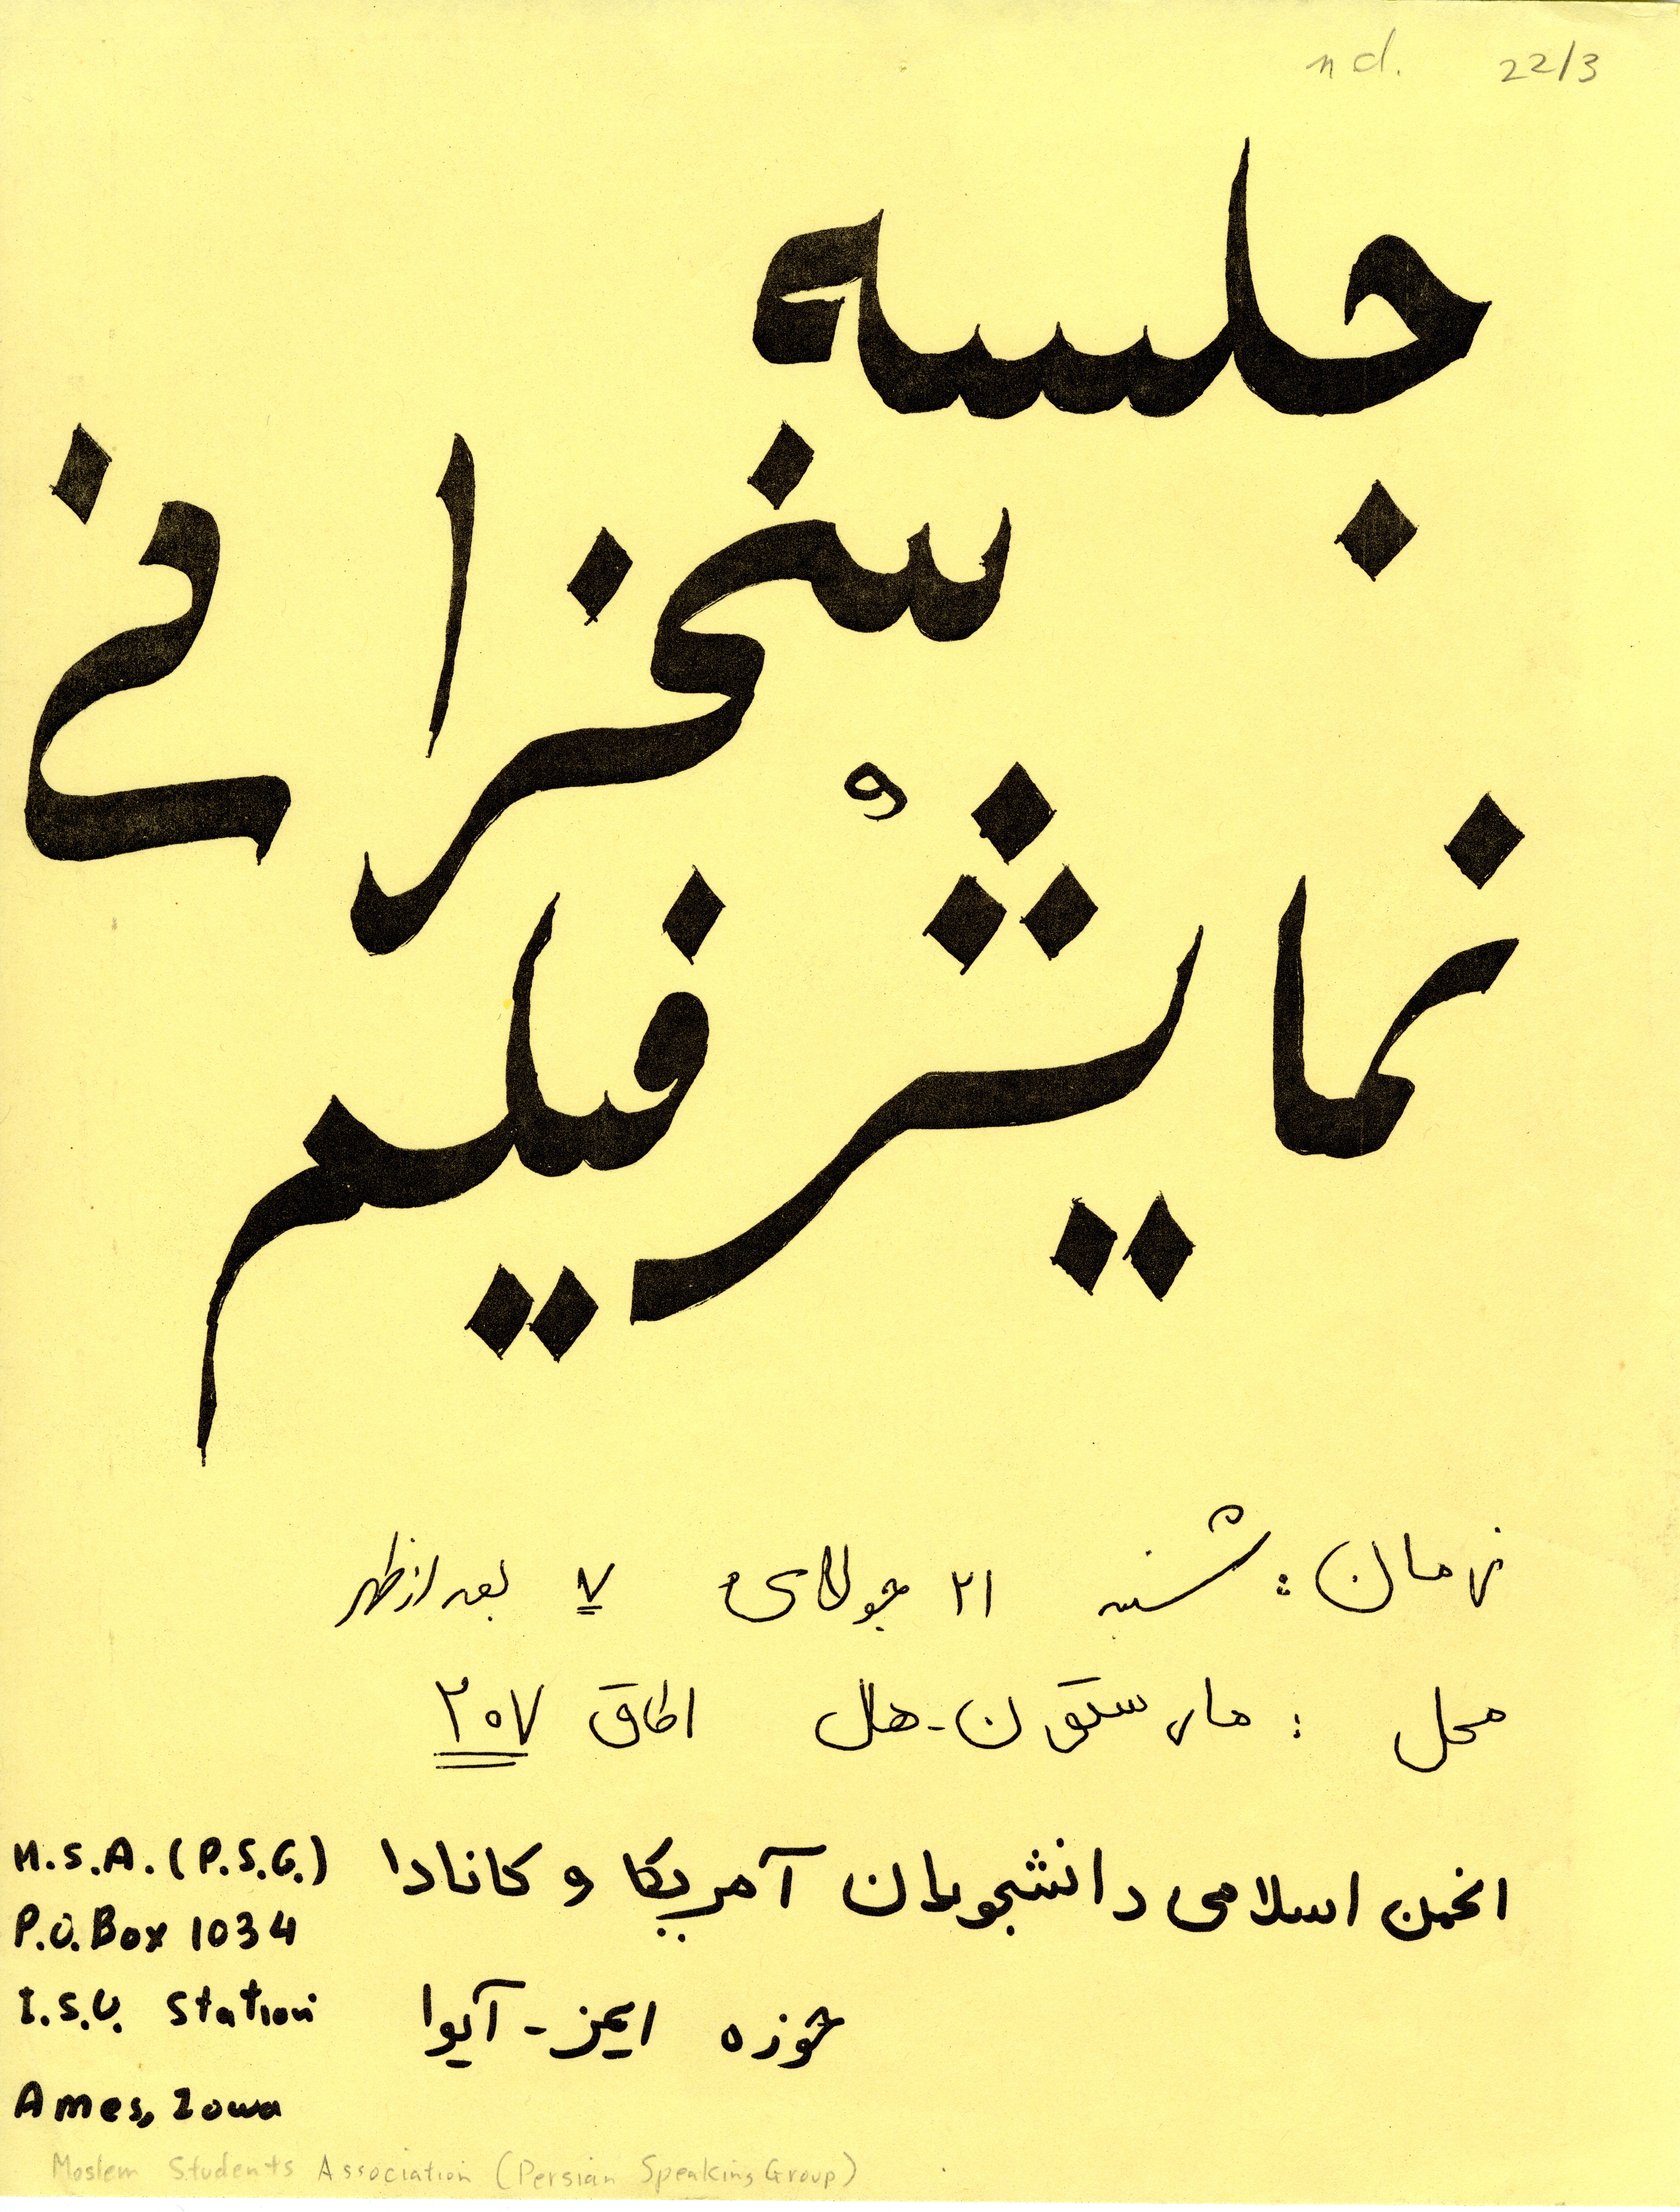 n d. 22/3
جلسه
سخنرانی
و
نمایش فیلم
زمان: شنبه ۲۱ جولای ۷ بعد از ظهر
محل : مارستون-هال اطاق ۲۰۷
انجمن اسلامی دانشجویان آمریکا و کانادا
حوزه ایمز-آیوا
M.S.A. (P.S.G.)
P.O. Box 1034
I.S.U. Station
Ames, Iowa
Moslem Students Association (Persian Speaking Group)